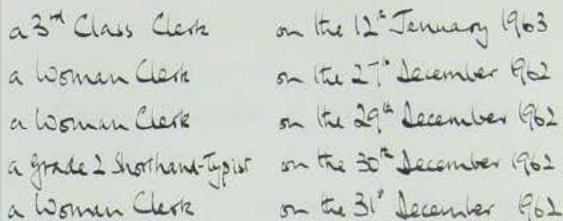 a 3rd Class Clerk on the 12th January 1963
a Woman Clerk on the 27th December 1962
a Woman Clerk on the 29th December 1962
a Grade 2 Shorthand-Typist on the 30th December 1962
a Woman Clerk on the 31st December 1962